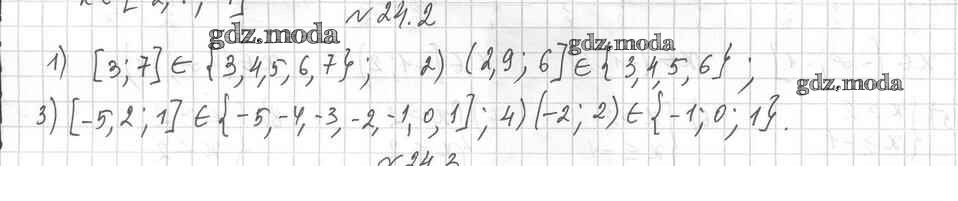 № 24.2
gdz.moda
gdz.moda
1) [3; 7] ∈ {3,4,5, 6, 7}; 2) (2,9; 6] ∈ {3,4,5,6};
gdz.moda
3) [-5,2; 1] ∈ {-5,-4,-3,-2,-1,0,1]; 4) (-2; 2) ∈ {-1; 0; 1}.